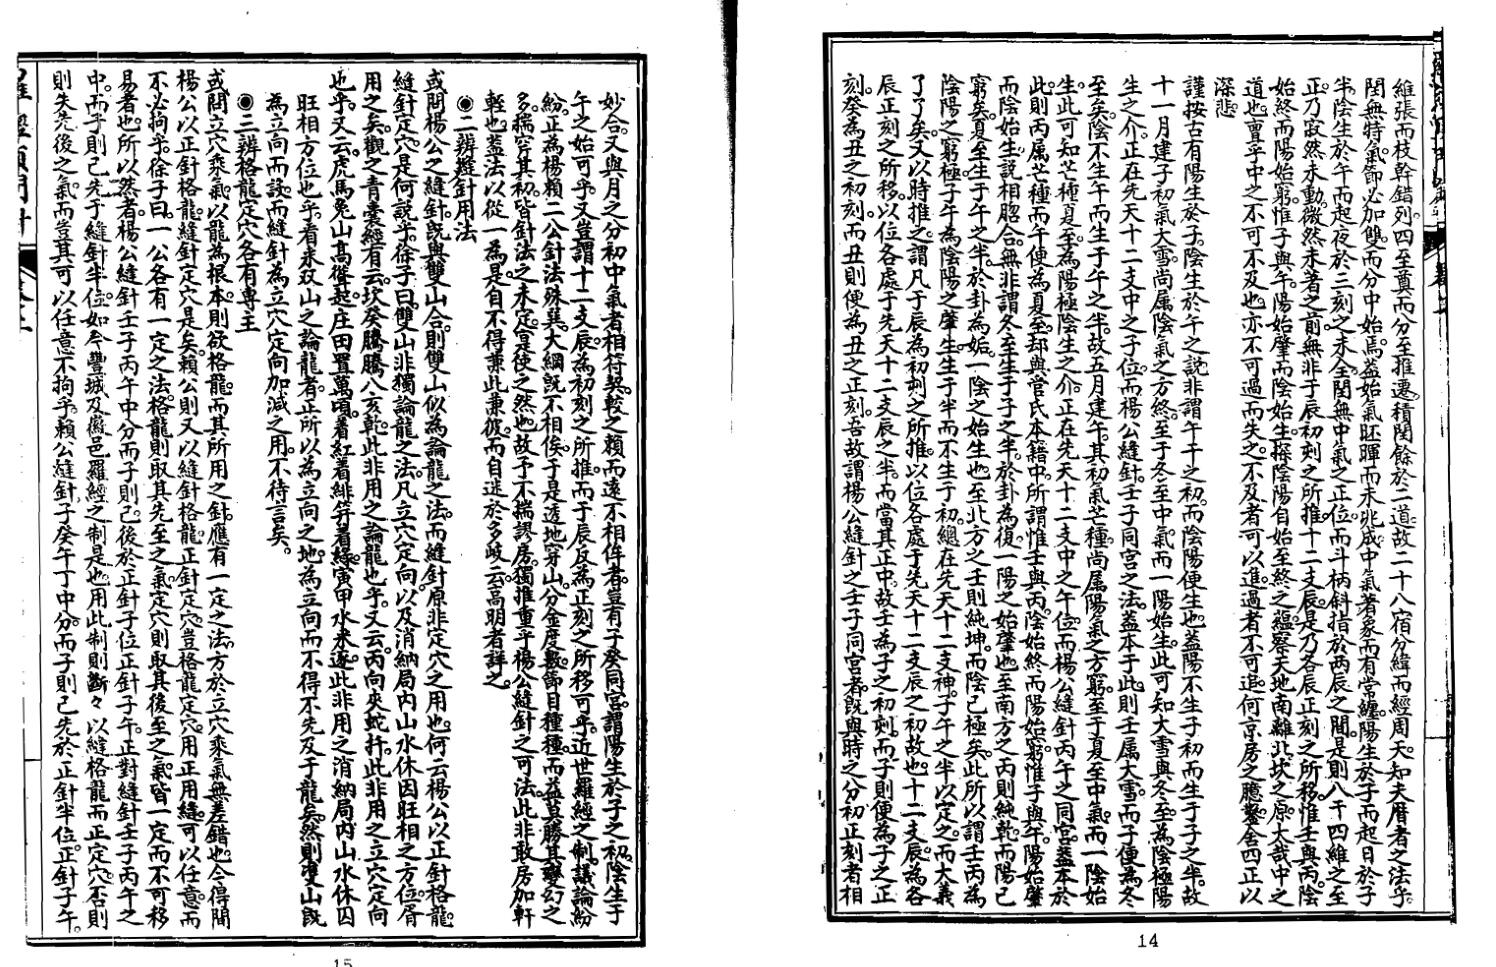 維張而枝幹錯列四至奠而分至推遷積閏餘於二道故二十八宿分緯而經周天知夫曆者之法乎
閏無特氣節必加雙而分中始焉蓋始氣胚暉而未兆成中氣著象而有常纏陽生於子而起日於子
半陰生於午而起夜於二刻之未全閏無中氣之正位而斗柄斜指於兩辰之間是則八干四維之至
正乃寂然未動微然未著之前無非于辰初刻之所推十二支辰是乃各辰正刻之所移惟壬與丙陰
始終而陽始窮惟子與午陽始肇而陰始生探陰陽自始至終之蘊察天地南離北坎之原大哉中之
道也亶乎中之不可不及也亦不可過而失之不及者可以進過者不可退何京房之臆鑿舍四正以
深悲
謹按古有陽生於子陰生於午之說非謂午子之初而陰陽便生也蓋陽不生于初而生于子之半故
十一月建子初氣大雪尚屬陰氣之方終至于冬至中氣而一陽始生此可知大雪與冬至為陰極陽
生之介正在先天十二支中之子位而楊公縫針壬子同宮之法蓋本于此則壬屬大雪而子便為冬
至矣陰不生午而生于午之半故五月建午其初氣芒種尚屬陽氣之方窮至于夏至中氣而一陰始
生此可知芒種夏至為陽極陰生之介正在先天十二支中之午位而楊公縫針丙午之同宮蓋本於
此則丙屬芒種而午便為夏至却與管氏本籍中所謂惟壬與丙陰始終而陽始窮惟子與午陽始肇
而陰始生說相脗合無非謂冬至生于子之半於卦為復一陽之始肇也至南方之丙則純乾而陽已
窮矣夏至生于午之半於卦為姤一陰之始生也至北方之壬則純坤而陰已極矣此所以謂壬丙為
陰陽之窮極子午為陰陽之肇生生于半而不生于初總在先天十二支神子午之半以定之而大義
了了矣又以時推之謂凡于辰為初刻之所推以位各處于先天十二支辰之初故也十二支辰為各
辰正刻之所移以位各處于先天十二支辰之半而當其正中故壬為子之初刻而子則便為子之正
刻癸為丑之初刻而丑則便為丑之正刻吾故謂楊公縫針之壬子同宮者既與時之分初正刻者相
14
妙合又與月之分初中氣者相符契較之賴而遠不相侔者豈有子癸同宮謂陽生於子之初陰生于
午之始可乎又豈謂十二支辰為初刻之所推而于辰反為正刻之所移可乎近世羅經之制議論紛
紛正為楊賴二公針法殊異大綱既不相俟于是透地穿山分金度數節目種種而益莫勝其變幻之
多揣究其初皆針法之未定寔使之然也故予不揣謬房獨推重乎楊公縫針之可法此非敢房加軒
輊也蓋法以從一為是自不得兼此兼彼而自迷於多岐云高明者詳之
◉二辨縫針用法
或問楊公之縫針既與雙山合則雙山似為論龍之法而縫針原非定穴之用也何云楊公以正針格龍
縫針定穴是何說乎徐子曰雙山非獨論龍之法凡立穴定向以及消納局內山水休囚旺相之方位胥
用之矣觀之青囊經有云坎癸騰騰入亥乾此非用之論龍也乎又云丙向夾蛇扦此非用之立穴定向
也乎又云虎馬兔山高聳起庄田置萬頃着紅着緋笄着綠寅甲水來逐此非用之消納局內山水休囚
旺相方位也乎看來双山之論龍者正所以為立向之地為立向而不得不先及于龍矣然則雙山既
為立向而設而縫針為立穴定向加減之用不待言矣
◉三辨格龍定穴各有專主
或問立穴乘氣以龍為根本則欲格龍而其所用之針應有一定之法方於立穴乘氣無差錯也今得聞
楊公以正針格龍縫針定穴是矣賴公則又以縫針格龍正針定穴豈格龍定穴用正用縫可以任意而
不必拘乎徐子曰一公各有一定之法格龍則取其先至之氣定穴則取其後至之氣皆一定而不可移
易者也所以然者楊公縫針壬子丙午中分而子則已後於正針子位正針子午正對縫針壬子丙午之
中而子則已先于縫針半位如今豐城及徽邑羅經之制是也用此制則斷々以縫格龍而正定穴否則
則失先後之氣而豈其可以任意不拘乎賴公縫針子癸午丁中分而子則已先於正針半位正針子午
15